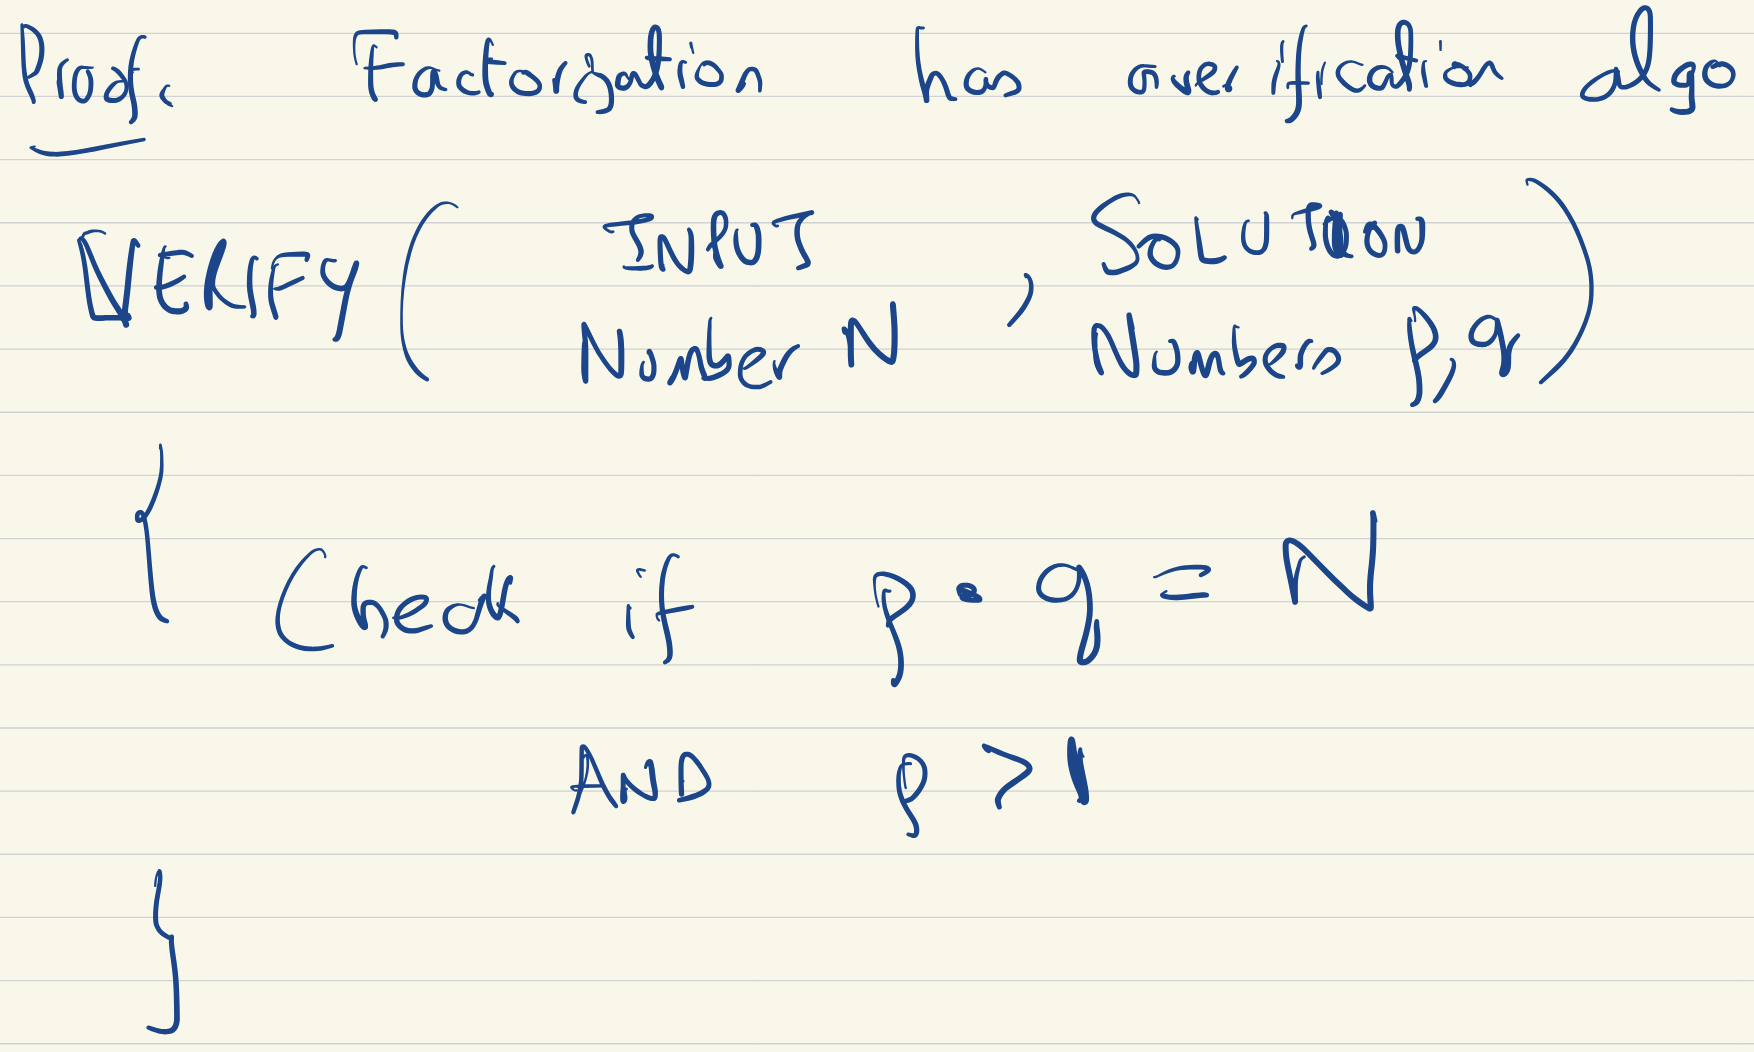 Proof. Factorization has a verification algo
VERIFY ( INPUT , SOLUTION )
Number N Numbers p, q
{
Check if p • q = N
AND p > 1
}